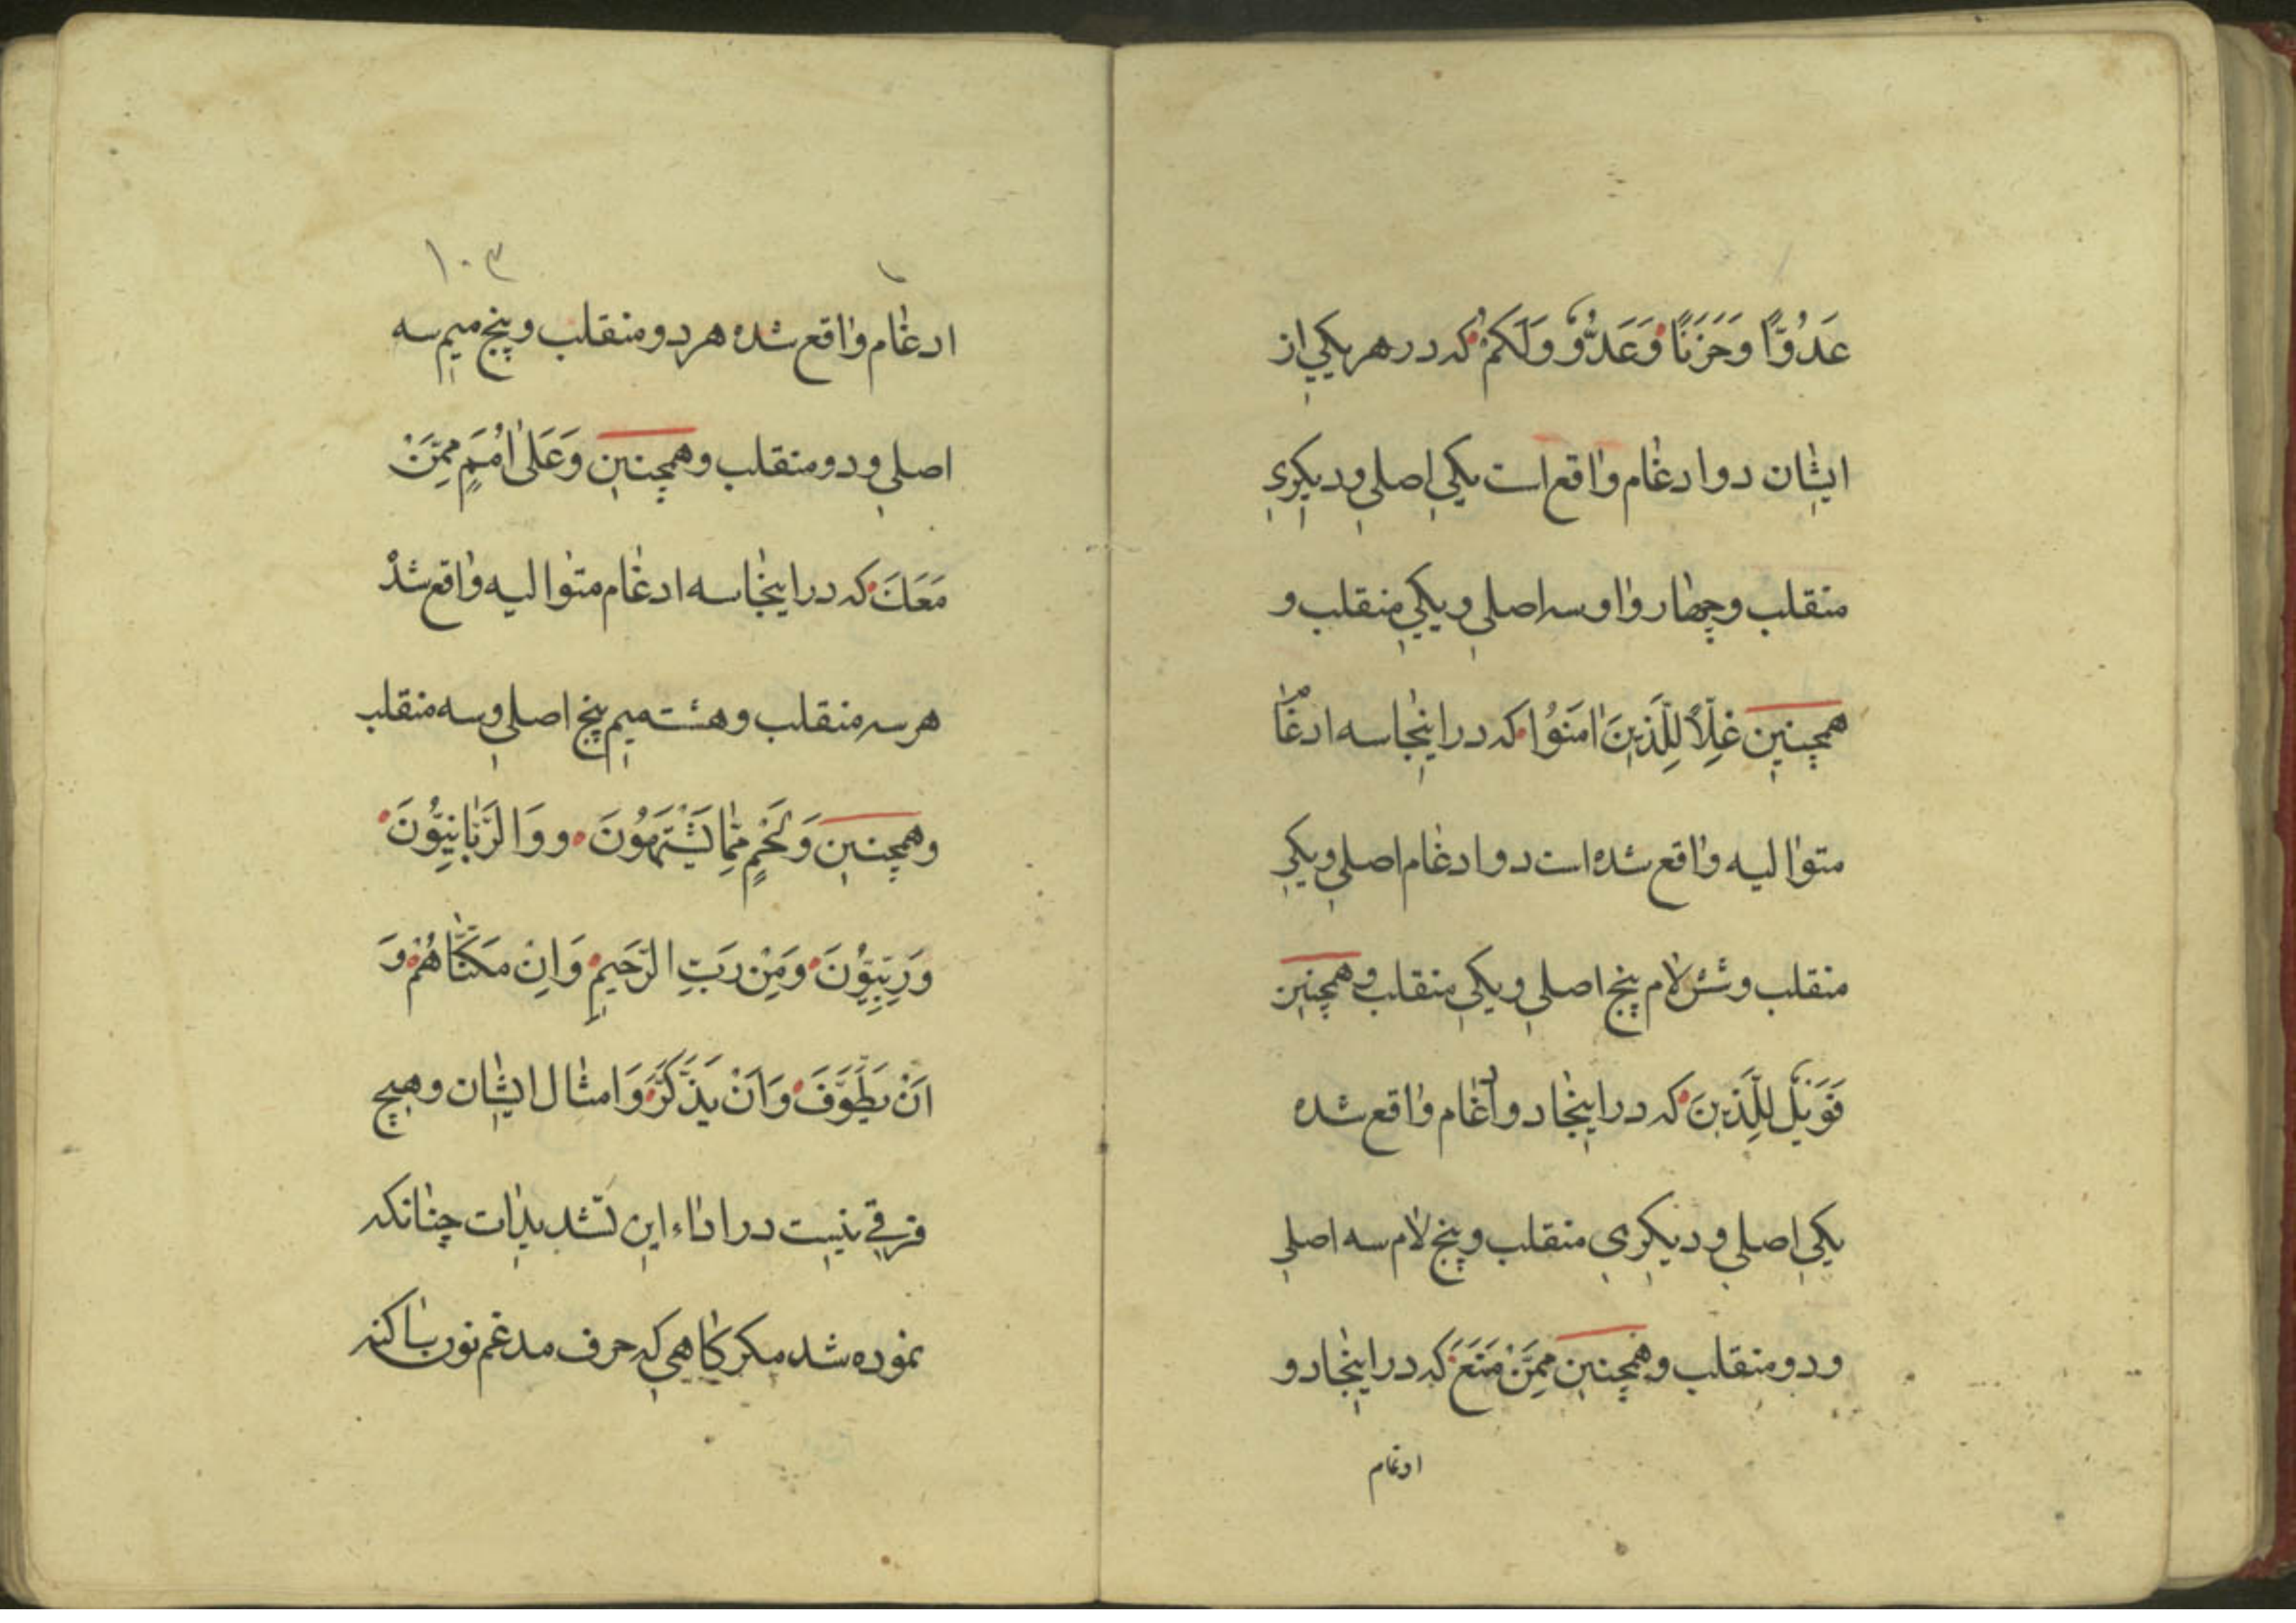 عَدُوًّا وَحَزَنًا وَعَدُوٌّ وَلَكُمْ كه در هر يكي از
ايشان دو ادغام واقع است يكي اصلي و ديكري
منقلب و چهار واو سه اصلي و يكي منقلب و
همچنين غِلًّا لِلَّذِينَ اٰمَنُوا كه در اينجا سه ادغام
متواليه واقع شده است دو ادغام اصلي و يكي
منقلب و شش لام پنج اصلي و يكي منقلب و همچنين
فَوَيْلٌ لِلَّذِينَ كه در اينجا دو ادغام واقع شده
يكي اصلي و ديكري منقلب و پنج لام سه اصلي
و دو منقلب و همچنين مِمَّنْ مَنَعَ كه در اينجا دو
ادغام
١٠٣
ادغام واقع شده هر دو منقلب و پنج ميم سه
اصلي و دو منقلب و همچنين وَعَلىٰ اُمَمٍ مِمَّنْ
مَعَكَ كه در اينجا سه ادغام متواليه واقع شد
هر سه منقلب و هشت ميم پنج اصلي و سه منقلب
و همچنين وَلَحْمٍ مِمَّا يَشْتَهُونَ و وَالرَّبَّانِيُّونَ
وَرِبِّيُّونَ وَمِنْ رَبِّ الرَّحِيمِ وَاِنْ مَكَّنَّاهُمْ وَ
اَنْ يَطَّوَّفَ وَاَنْ يَذَّكَّرَ وَامثال ايشان و هيچ
فرقي نيست در اداء اين تشديدات چنانكه
نموده شد مكر كاهي كه حرف مدغم نون ساكنه